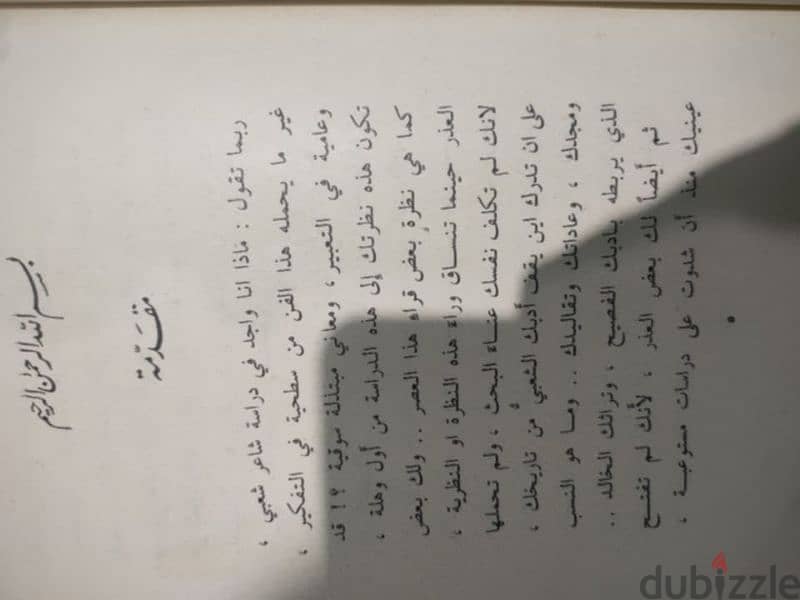 بسم الله الرحمن الرحيم
مقدمة
ربما تقول : ماذا انا واجد في دراسة شاعر شعبي ،
غير ما يحمله هذا الفن من سطحية في التفكير ،
وعامية في التعبير ، ومعاني مبتذلة سوقية ؟! قد
تكون هذه نظرتك إلى هذه الدراسة من أول وهلة ،
كما هي نظرة بعض قراء هذا العصر .. ولك بعض
العذر حينما تنساق وراء هذه النظرة او النظرية ،
لانك لم تكلف نفسك عناء البحث ، ولم تحملها
على ان تدرك اين يقف أدبك الشعبي من تاريخك ،
ومجدك ، وعاداتك وتقاليدك .. وما هو النسب
الذي يربطه بادبك الفصيح ، وتراثك الخالد ..
ثم أيضاً لك بعض العذر ، لأنك لم تفتح
عينيك منذ أن شدوت على دراسات مستوعبة ،
dubizzle